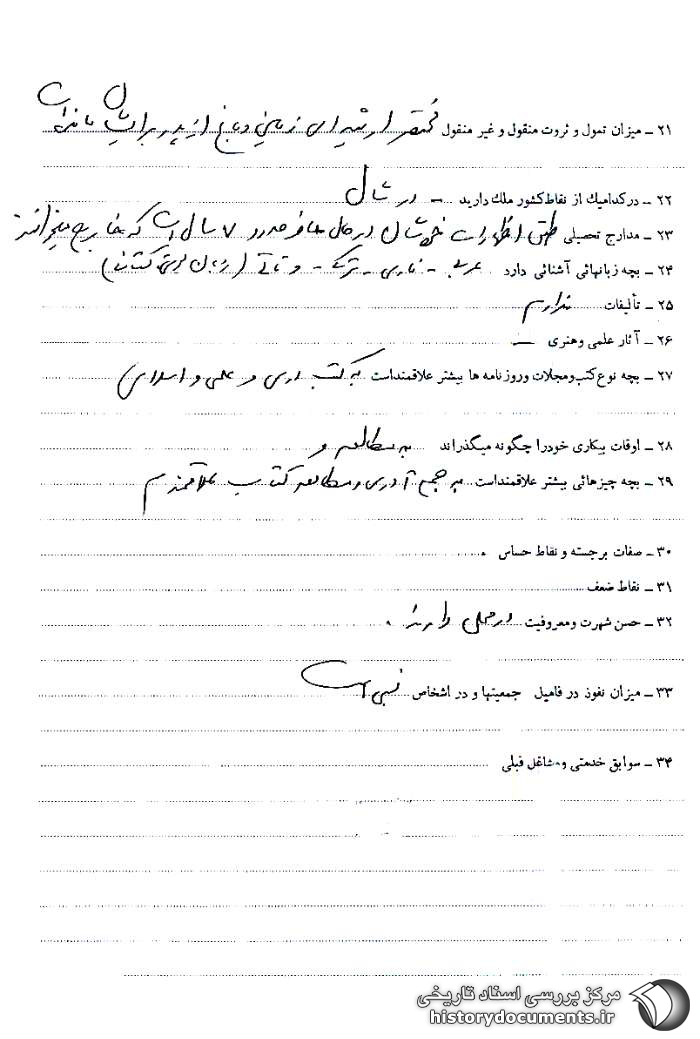 ۲۱ – میزان تمول و ثروت منقول و غیر منقول مختصر ارثیه‌ای زمین و باغ از پدر برایشان مانده است
۲۲ – در کدامیك از نقاط کشور ملك دارید – در شال
۲۳ – مدارج تحصیلی طبق اظهارات خودشان در حال حاضر حدود ۷ سال است که خارج میخوانند
۲۴ – بچه زبانهائی آشنائی دارد عربی – فارسی – ترکی – و تاتی (زبان
۲۵ – تألیفات ندارم
۲۶ – آثار علمی وهنری –
۲۷ – بچه نوع کتب ومجلات وروزنامه ها بیشتر علاقمنداست به کتب ادبی و علمی و اسلامی
۲۸ – اوقات بیکاری خودرا چگونه میگذراند به مطالعه و
۲۹ – بچه چیزهائی بیشتر علاقمنداست به جمع آوری و مطالعه کتاب علاقمندم
۳۰ – صفات برجسته و نقاط حساس
۳۱ – نقاط ضعف
۳۲ – حسن شهرت ومعروفیت در محل دارند.
۳۳ – میزان نفوذ در فامیل جمعیتها و در اشخاص نسبی است
۳۴ – سوابق خدمتی ومشاغل قبلی
مرکز بررسی اسناد تاریخی
historydocuments.ir